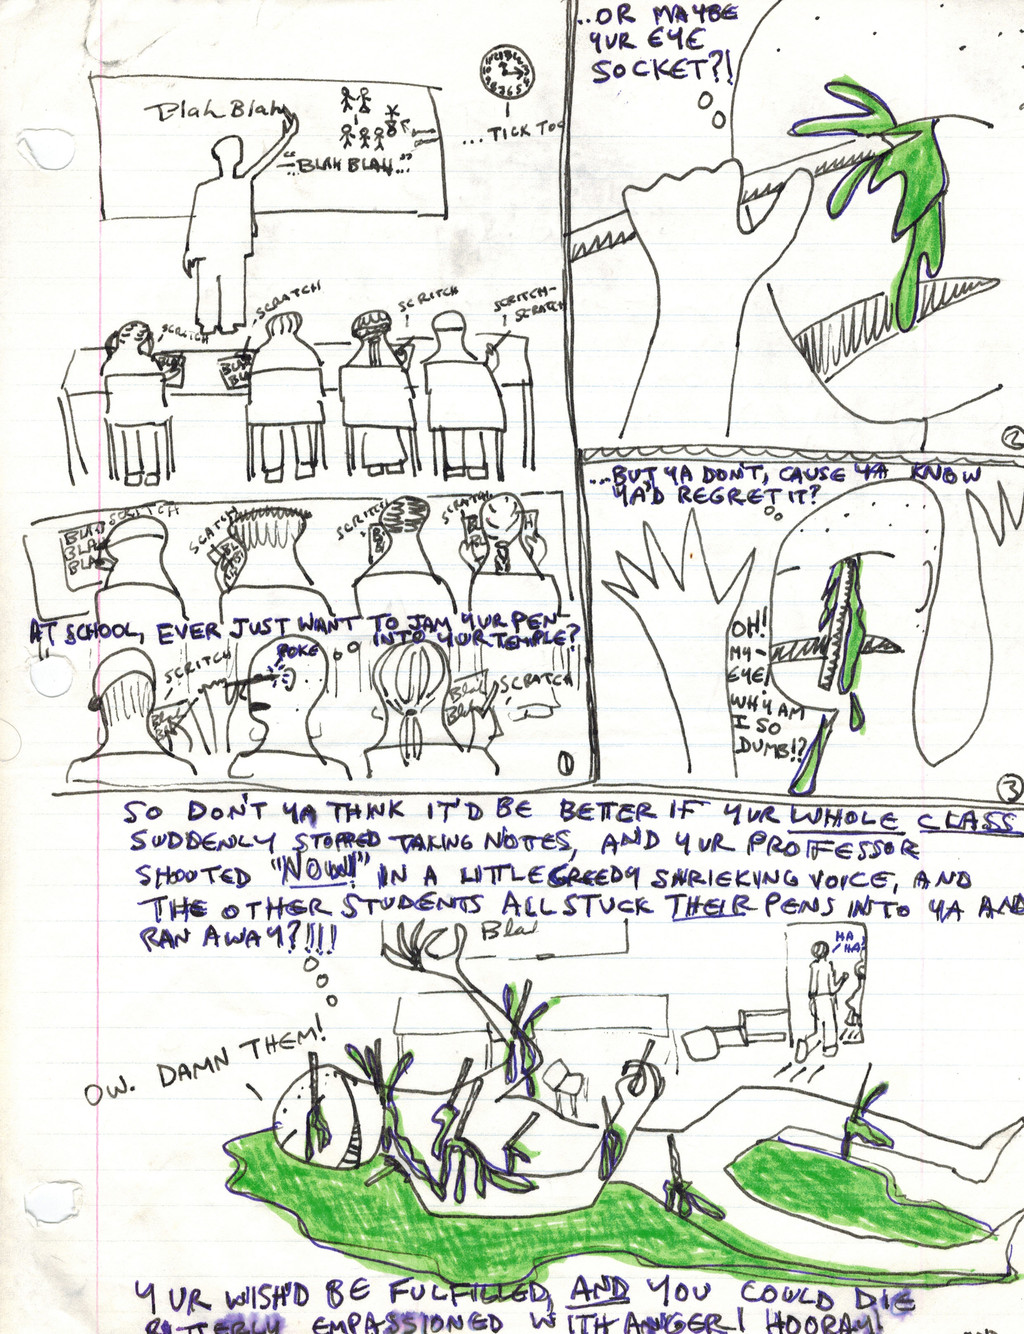 Blah Blah
"BLAH BLAH..."
...TICK TOC
SCRITCH
SCRATCH
SCRITCH
SCRITCH-
SCRATCH
BLAH
BLA
BLA
BLAH
BLAH
BLAH
SCRITCH
SCRATCH
SCRITCH
SCRATCH
AT SCHOOL, EVER JUST WANT TO JAM YUR PEN
INTO YUR TEMPLE?
POKE
SCRITCH
Blah
Blah
SCRATCH
1
...OR MAYBE
YUR EYE
SOCKET?!
2
...BUT YA DON'T, CAUSE YA KNOW
YA'D REGRET IT?
OH!
MY-
EYE!
WHY AM
I SO
DUMB!?
3
SO DON'T YA THINK IT'D BE BETTER IF YUR WHOLE CLASS
SUDDENLY STOPPED TAKING NOTES, AND YUR PROFESSOR
SHOUTED "NOW!" IN A LITTLE GREEDY SHRIEKING VOICE, AND
THE OTHER STUDENTS ALL STUCK THEIR PENS INTO YA AND
RAN AWAY?!!!!
Blah
HA
HA!
OW. DAMN THEM!
YUR WISH'D BE FULFILLED, AND YOU COULD DIE
BITTERLY EMPASSIONED WITH ANGER! HOORAY!